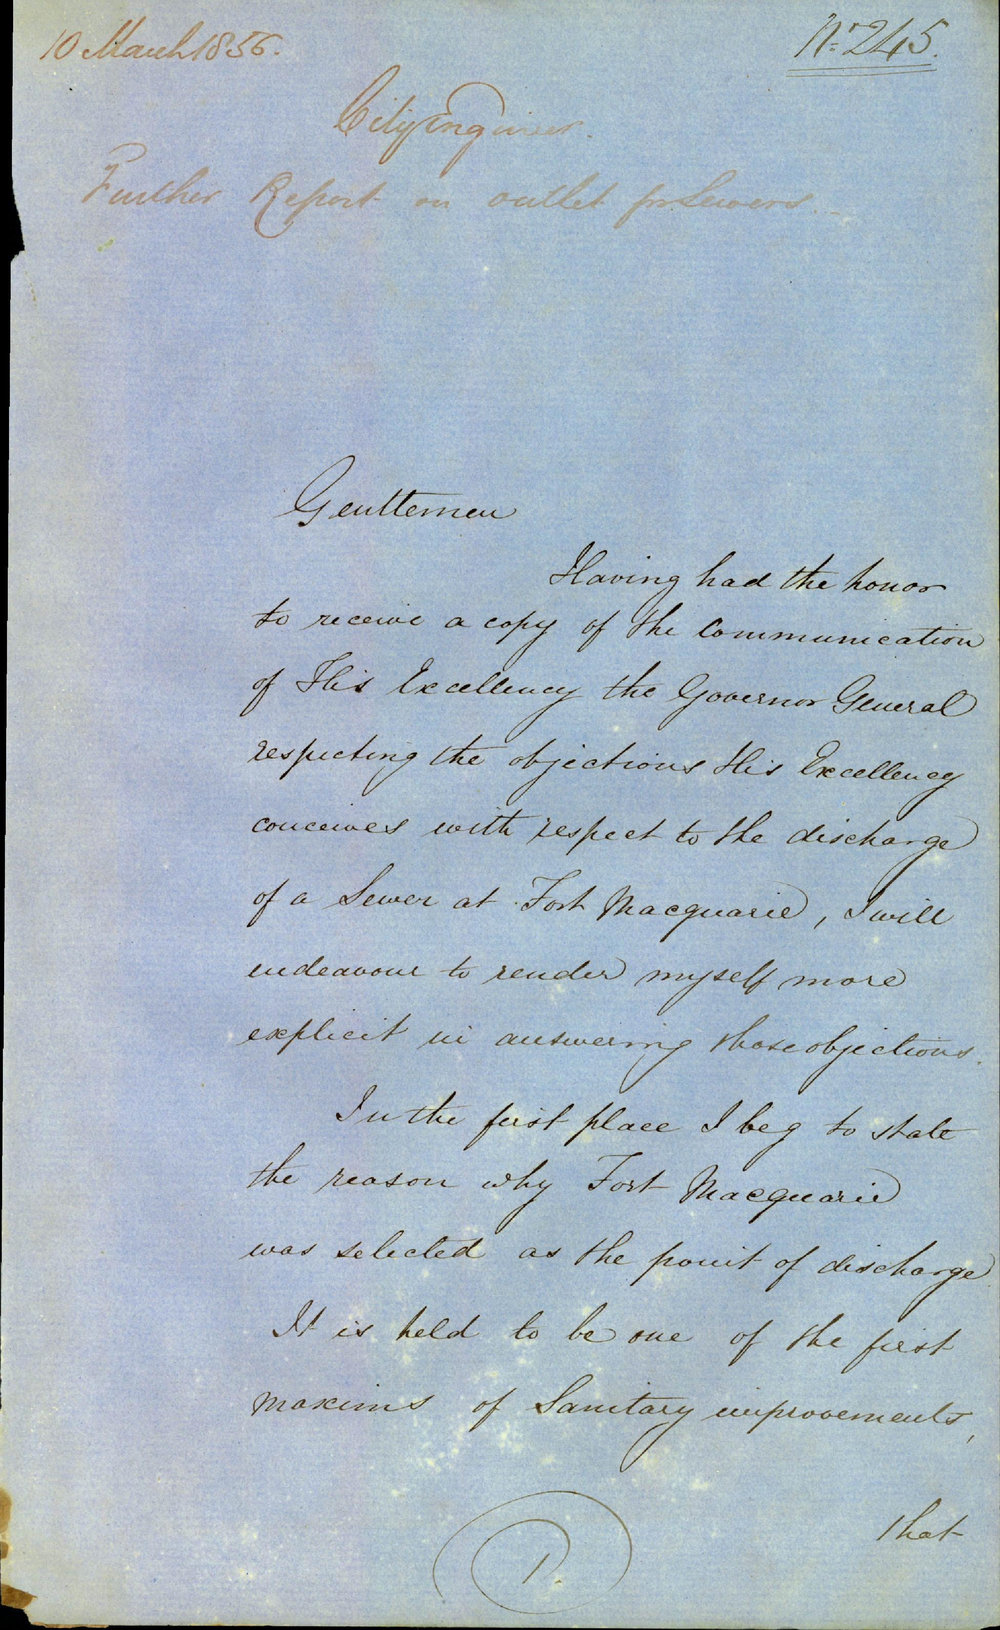 10 March 1856.
No. 245.
City Engineer.
Further Report on outlet for Sewers.
Gentlemen
Having had the honor
to receive a copy of the Communication
of His Excellency the Governor General
respecting the objections His Excellency
conceives with respect to the discharge
of a Sewer at Fort Macquarie, I will
endeavour to render myself more
explicit in answering those objections.
In the first place I beg to state
the reason why Fort Macquarie
was selected as the point of discharge
It is held to be one of the first
maxims of Sanitary improvements,
that
1.